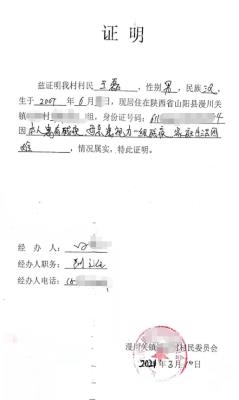 证明
兹证明我村村民 王磊 ，性别 男 ，民族 汉 ，
生于 2007 年 6 月 日，现居住在陕西省山阳县漫川关
镇 村 组，身份证号码：61 4
因 本人患有残疾 视力一级残疾 家庭生活困
难 ，情况属实，特此证明。
经 办 人：
经办人职务：副主任
经办人电话：
漫川关镇 村民委员会
2021年3月10日